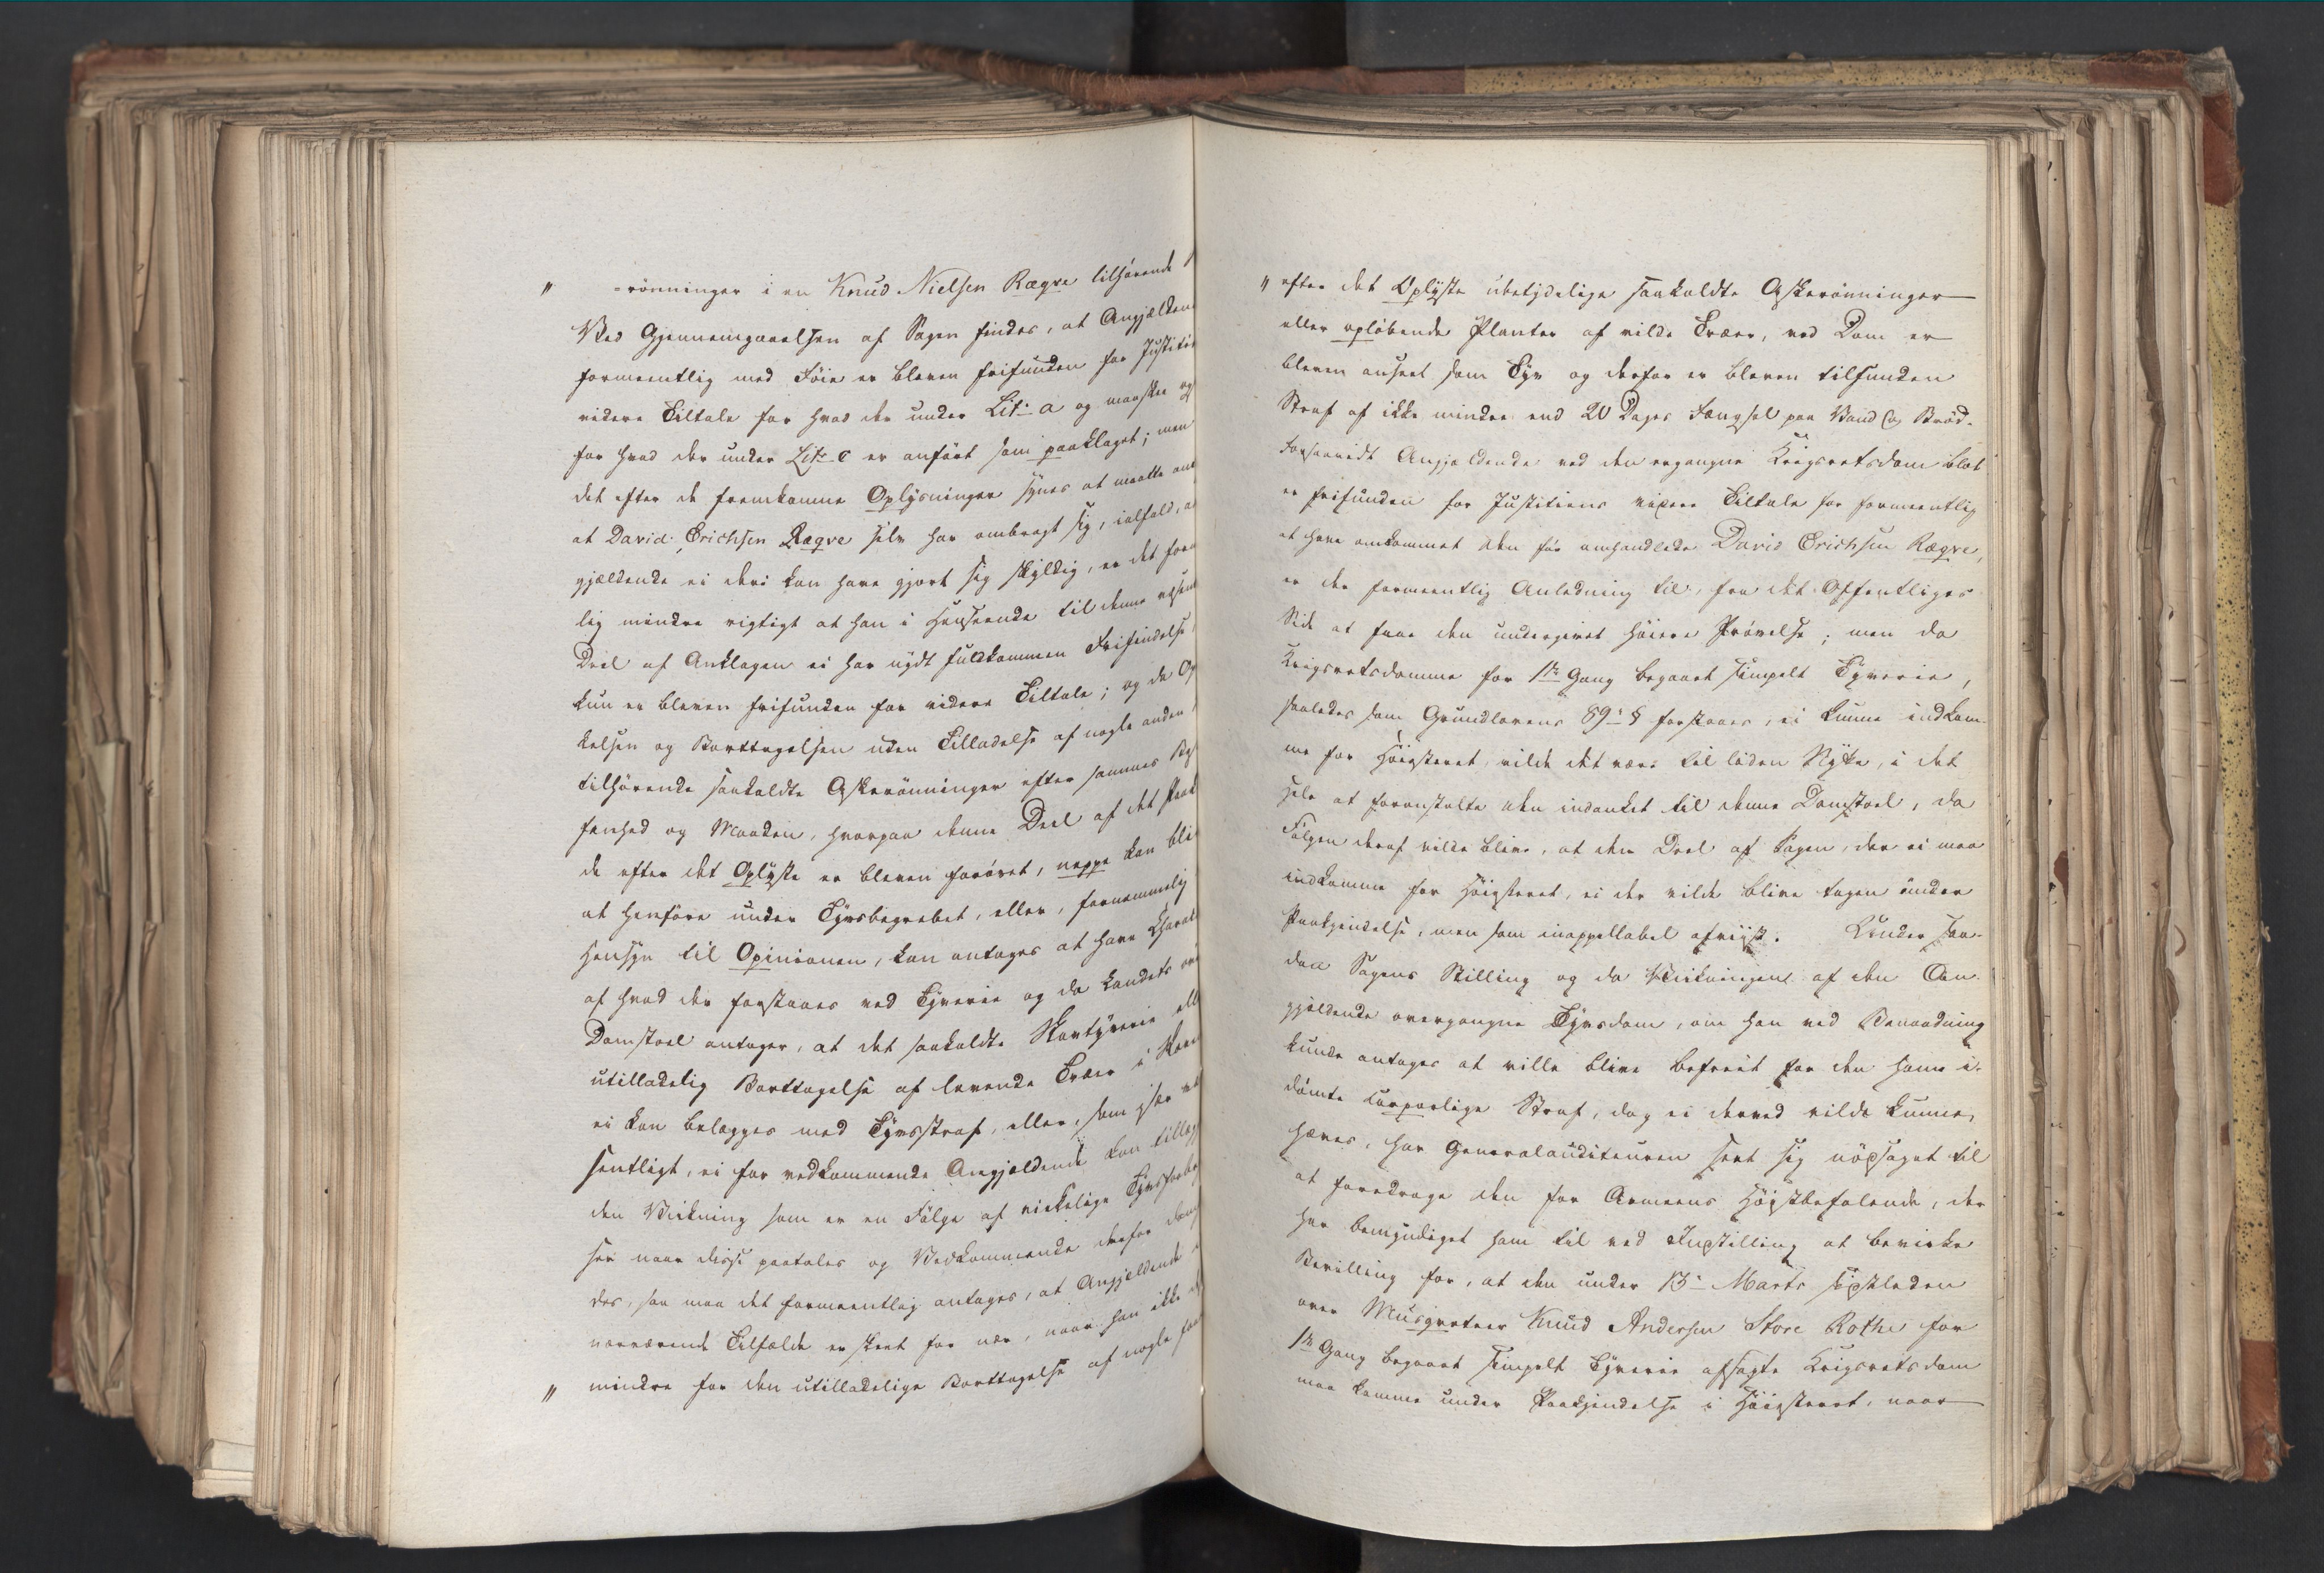 „ =rönninger i en Knud Nielsen Rægve tilhörende
Ved Gjennemgaaelsen af Sagen findes, at Angjælden
formeentlig med Föie er bleven frifunden for Justitie
videre Tiltale for hvad der under Litr a og maaskee og
for hvad der under Litr c er anfört som paaklaget; men
det efter de fremkomne Oplysninger synes at maatte an
at David Erichsen Rægve selv har ombragt sig, ialfald, a
gjældende ei deri kan have gjort sig skyldig, er det form
lig mindre rigtigt at han i Henseende til denne væsent
Deel af Anklagen ei har nydt fuldkommen Frifindelse,
kun er bleven frifunden for videre Tiltale; og da Op
kelsen og Borttagelsen uden Tilladelse af nogle anden
tilhörende saakaldte Askerönninger efter sammes Be
fenhed og Maaden, hvorpaa denne Deel af det Paak
de efter det Oplyste er bleven forövet, neppe kan bli
at henföre under Tyvsbegrebet, eller, fornemmelig
Hensyn til Opinionen, kan antages at have Charak
af hvad der forstaaes ved Tyverie og da Landets
Domstoel antager, at det saakaldte Skovtyverie ell
utilladelig Borttagelse af levende Træer i Skov
ei kan belægges med Tyvsstraf, eller, som især
sentligt, ei for vedkommende Angjældende kan tillæg
den Virkning som er en Fölge af virkelige Tyvsforbry
ser naar disse paatales og Vedkommende derfor döm
des, saa maa det formeentlig antages, at Angjældende i
nærværende Tilfælde er skeet for nær, naar han ikke
„ mindre for den utilladelige Borttagelse af nogle faa
„ efter det Oplyste ubetydelige saakaldte Askerönninger
eller oplöbende Planter af vilde Træer, ved Dom er
bleven anseet som Tyv og derfor er bleven tilfunden
Straf af ikke mindre end 20 Dages Fængsel paa Vand og Bröd.
Forsaavidt Angjældende ved den ergangne Krigsretsdom blot
er frifunden for Justitiens videre Tiltale for formeentlig
at have omkommet den för omhandlede David Erichsen Rægve,
er der formeentlig Anledning til, fra det Offentliges
Side at faae den undergivet höiere Prövelse; men da
Krigsretsdomme for 1ste Gang begaaet simpelt Tyverie,
saaledes som Grundlovens 89de § forstaaes, ei kunne indkom-
me for Höiesteret, vilde det være til liden Nytte, i det
Hele at foranstalte den indanket til denne Domstoel, da
Fölgen deraf vilde blive, at den Deel af Sagen, der ei maa
indkomme for Höiesteret, ei der vilde blive tagen under
Paakjendelse, men som inappellabel afviist. Under saa-
dan Sagens Stilling og da Virkningen af den An-
gjældende overgangne Tyvsdom, om han ved Benaadning
kunde antages at ville blive befriet for den ham i-
dömte corporlige Straf, dog ei derved vilde kunne
hæves, har Generalauditeuren seet sig nödsaget til
at foredrage den for Armeens Höistbefalende, der
har bemyndiget ham til ved Indstilling at bevirke
Bevilling for, at den under 13de Marts sidstleden
over Musqueteer Knud Andersen Store Rothe for
1ste Gang begaaet simpelt Tyverie afsagte Krigsretsdom
maa komme under Paakjendelse i Höiesteret, naar